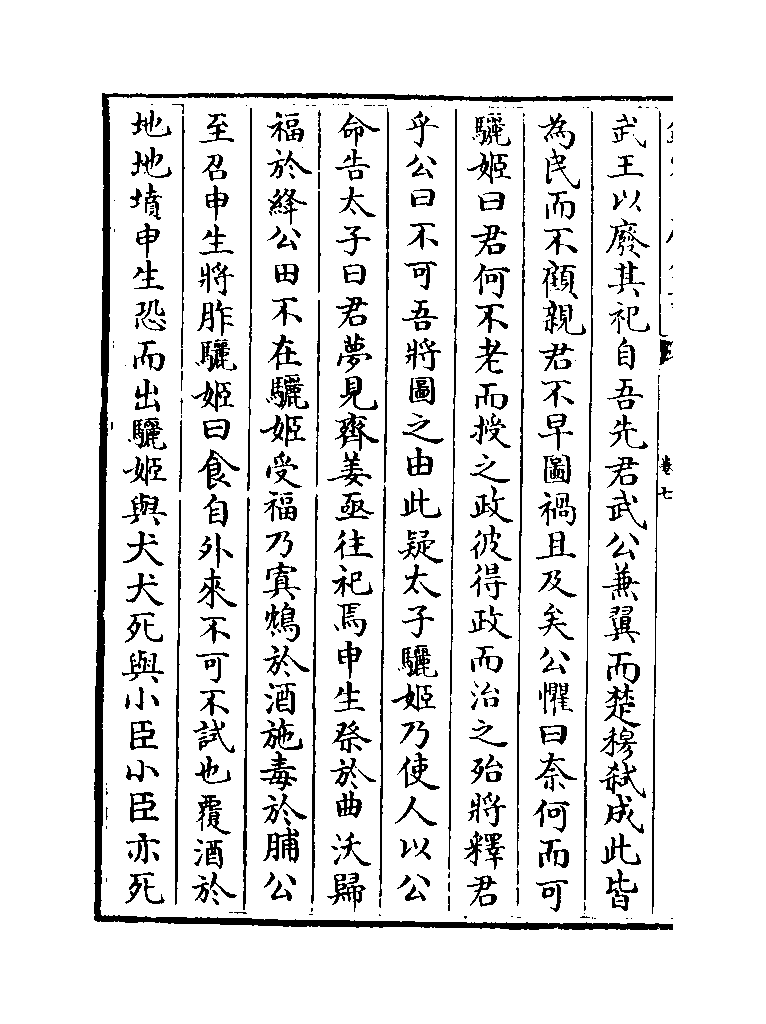 武王以廢其祀自吾先君武公兼翼而楚穆弑成此皆
為民而不顧親君不早圖禍且及矣公懼曰奈何而可
驪姬曰君何不老而授之政彼得政而治之殆將釋君
乎公曰不可吾將圖之由此疑太子驪姬乃使人以公
命告太子曰君夢見齊姜亟往祀焉申生祭於曲沃歸
福於絳公田不在驪姬受福乃寘鴆於酒施毒於脯公
至召申生將胙驪姬曰食自外來不可不試也覆酒於
地地墳申生恐而出驪姬與犬犬死與小臣小臣亦死
卷七